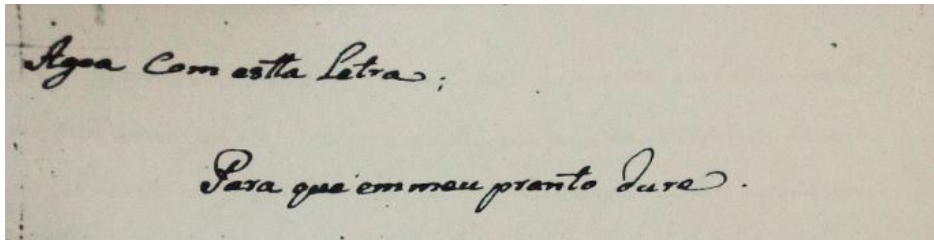 Agoa Com estta Letra;
Para que em meu pranto dure.